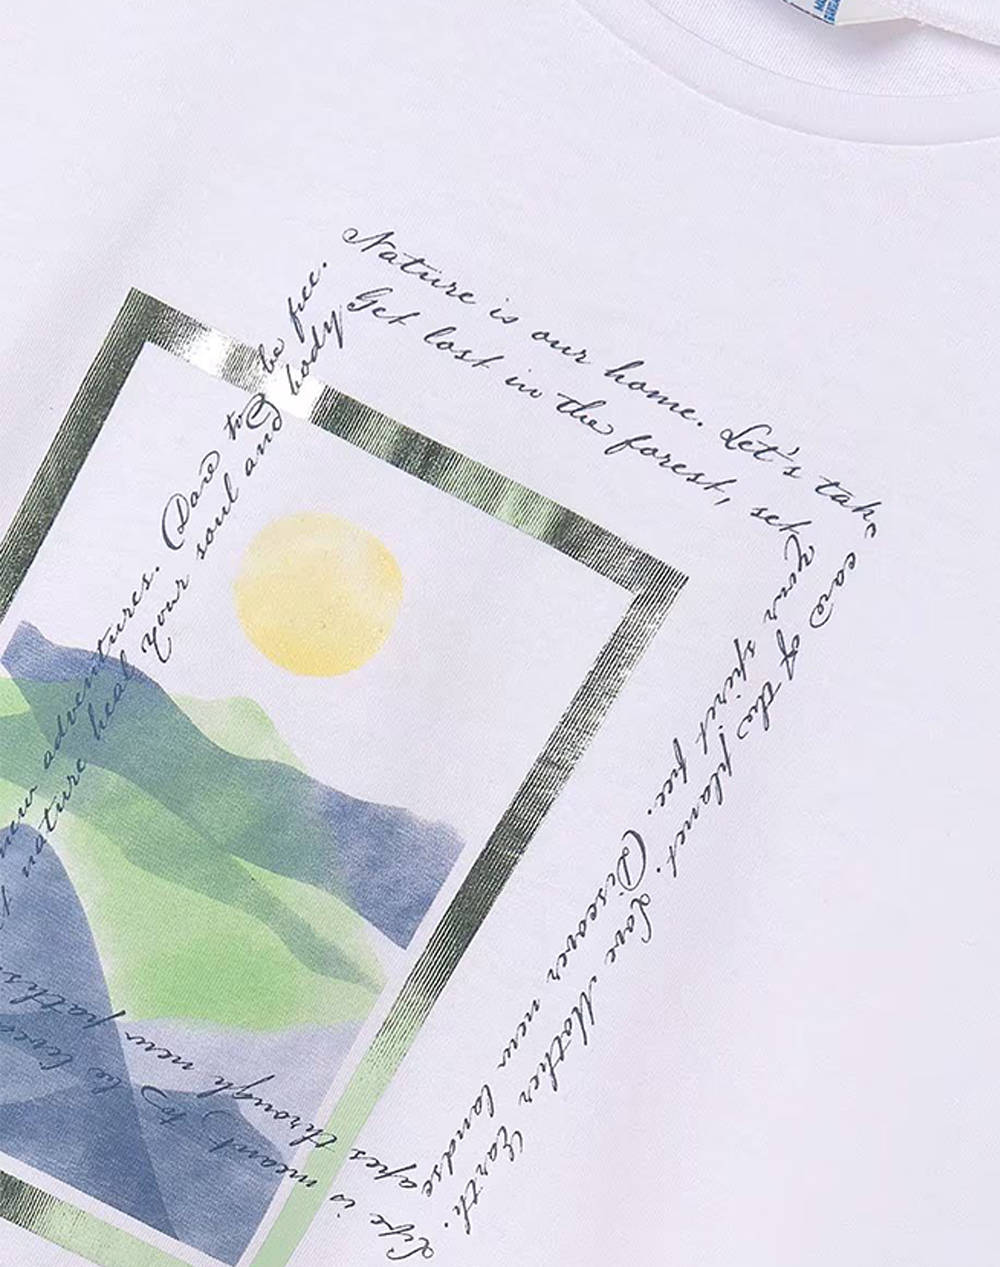 Nature is our home. Let's take
care of the planet. Love Mother Earth.
Life is meant to be lived
new adventures. Dare to be free.
Get lost in the forest, set
your spirit free. Discover new landscapes
through new paths.
nature heal your soul and body